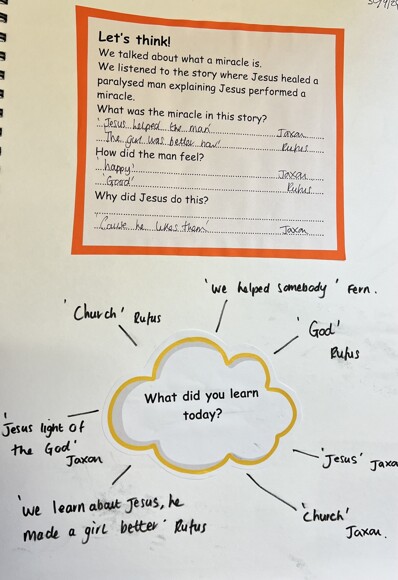 Let's think!
We talked about what a miracle is.
We listened to the story where Jesus healed a
paralysed man explaining Jesus performed a
miracle.
What was the miracle in this story?
'Jesus helped the man' Jaxon
'The girl was better now' Rufus
How did the man feel?
'happy' Jaxon
'Good' Rufus
Why did Jesus do this?
'Cause he likes them' Jaxon
'We helped somebody' Fern.
'Church' Rufus
'God'
Rufus
What did you learn
today?
'Jesus light of
the God'
Jaxon
'Jesus' Jaxo
'we learn about Jesus, he
made a girl better' Rufus
'Church'
Jaxon.